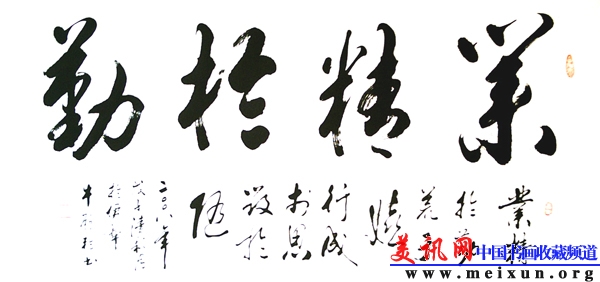 業精於勤
業精
於勤
荒于
嬉
行成
於思
毀於
随
二〇〇八年
美讯网
中国书画收藏频道
www.meixun.org